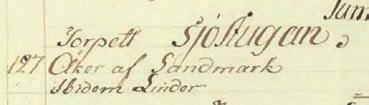 Torpett Sjöstugan.
127 Åker af Sandmark
Ibidem Linder